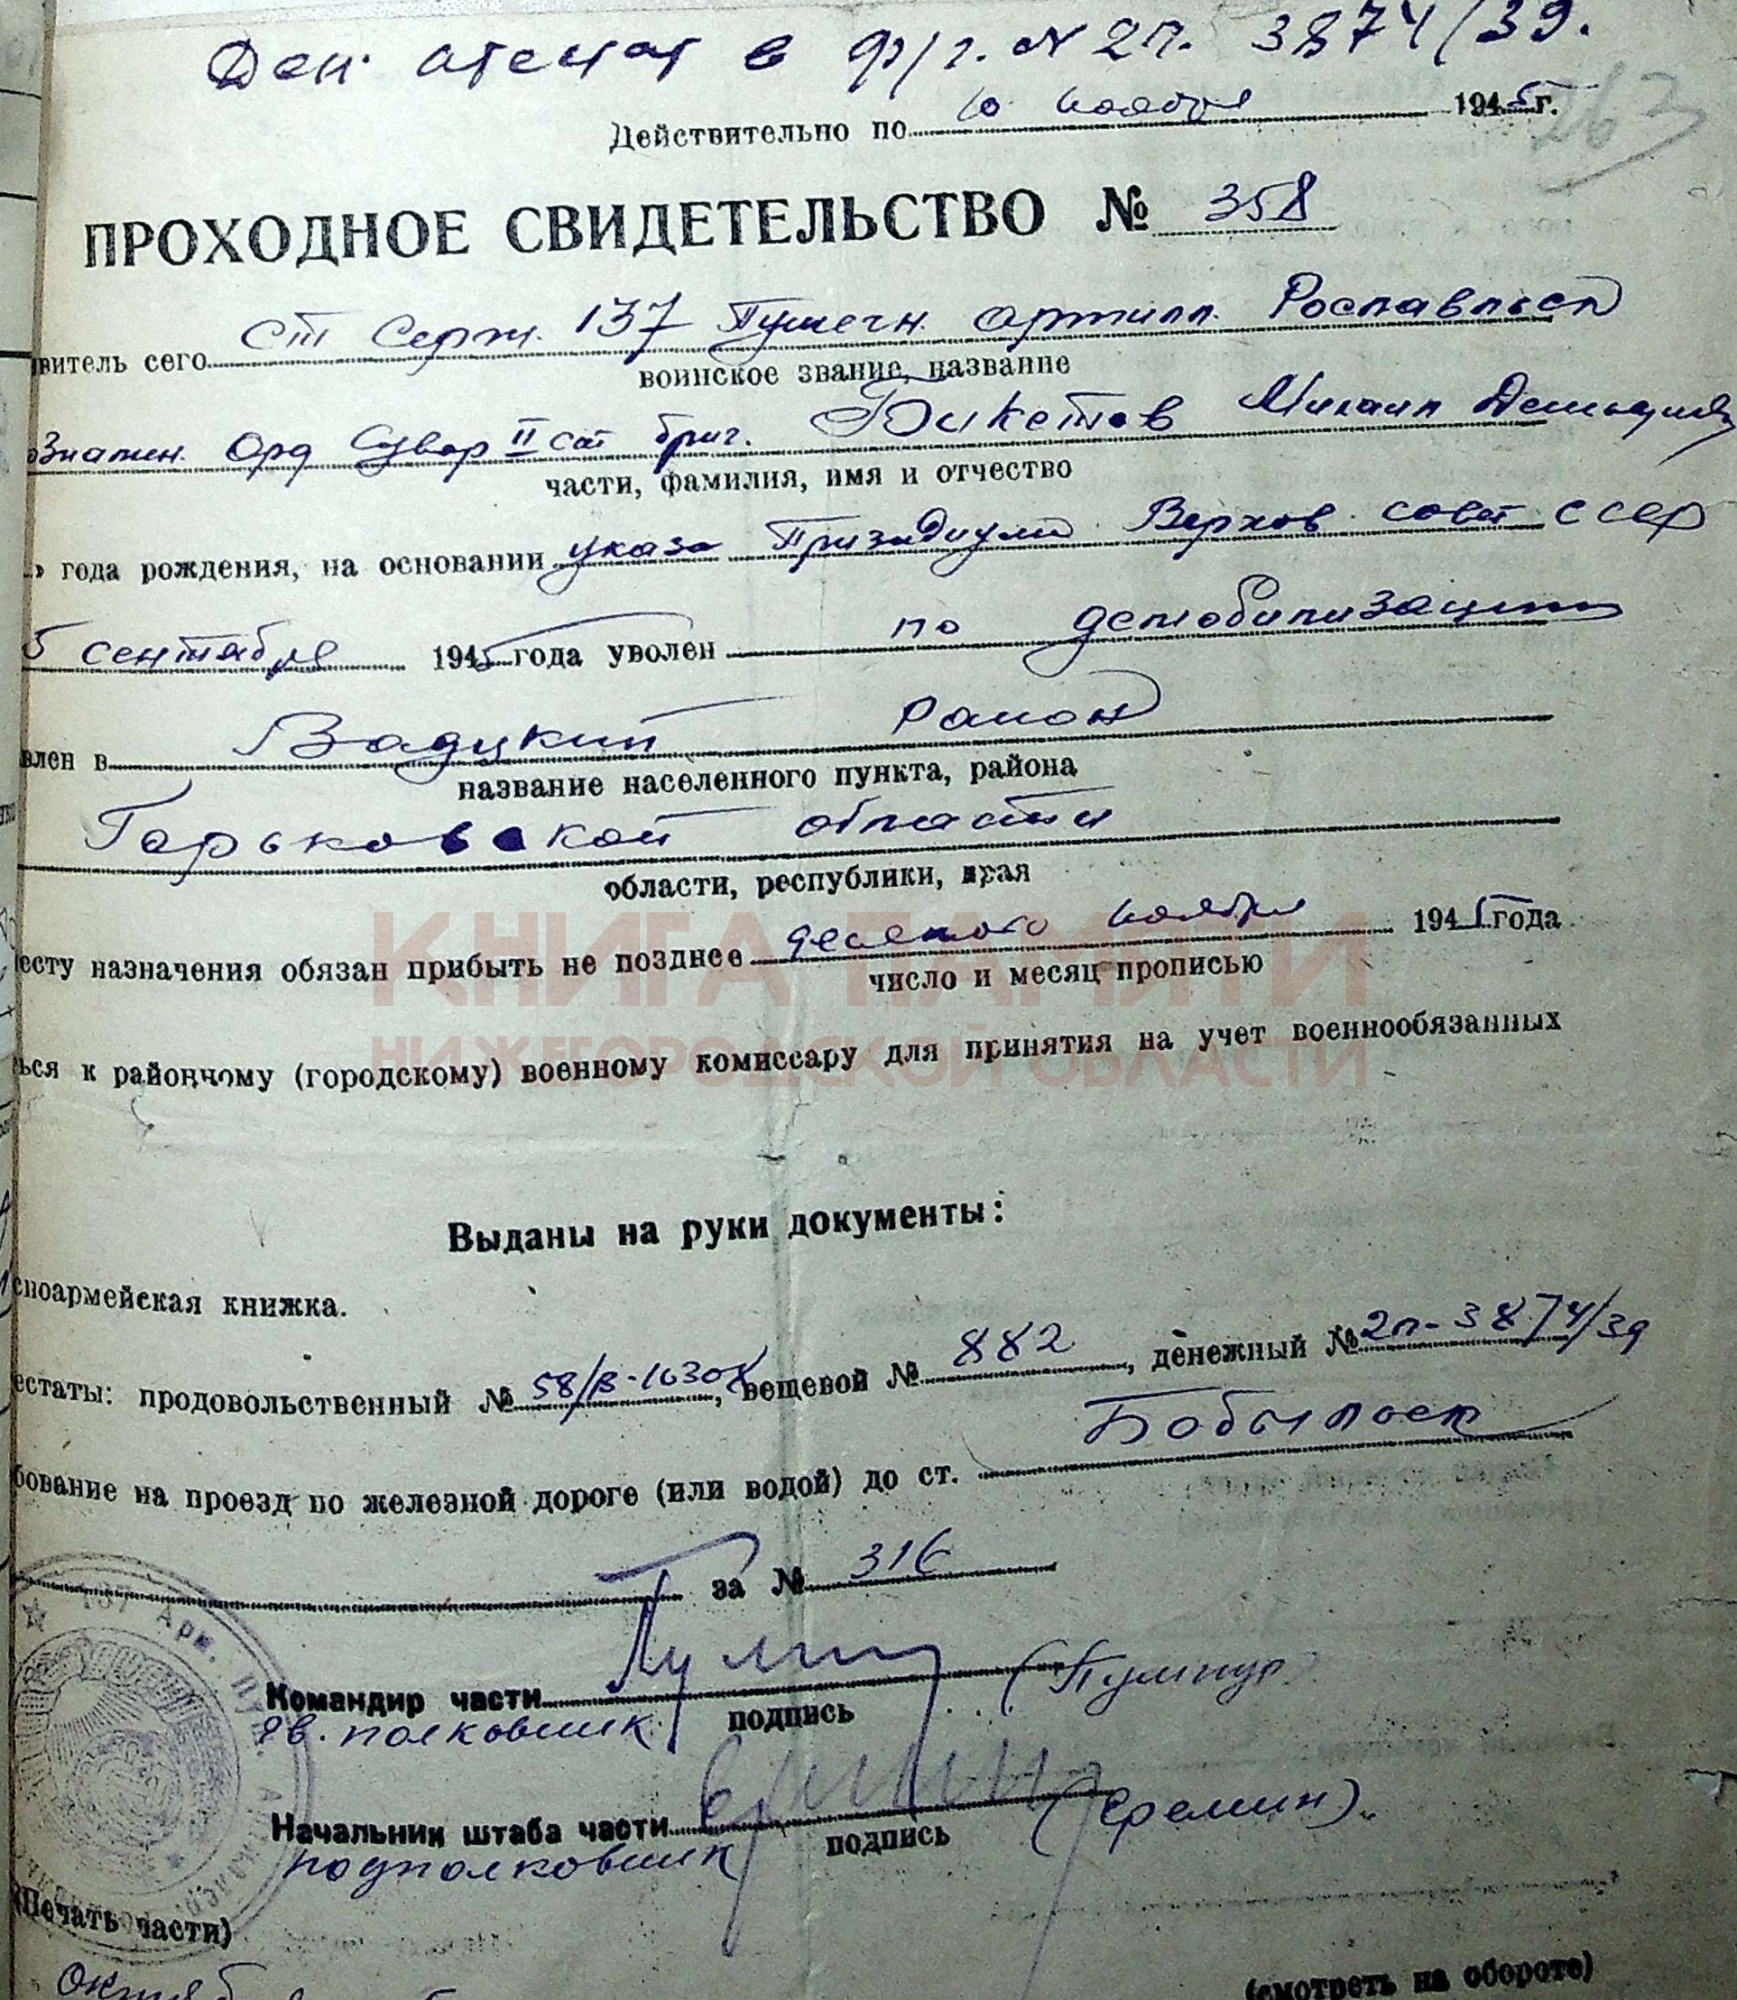 Ден. атестат в ф/г. № 2п. 3874/39.
263
Действительно по 10 ноября 1945 г.
ПРОХОДНОЕ СВИДЕТЕЛЬСТВО № 358
витель сего Ст Серж. 137 Пушечн. Артилл. Рославльск
воинское звание, название
ознамен. Орд Сувор II ст бриг. Бикетов Михаил
части, фамилия, имя и отчество
» года рождения, на основании указа Призидиума Верхов. совет СССР
5 сентября 1945 года уволен по демобилизации
влен в Вадский район
название населенного пункта, района
Горьковской области
области, республики, края
есту назначения обязан прибыть не позднее десятого ноября 1945 года
число и месяц прописью
КНИГА ПАМЯТИ
ься к районному (городскому) военному комиссару для принятия на учет военнообязанных
НИЖЕГОРОДСКОЙ ОБЛАСТИ
Выданы на руки документы:
сноармейская книжка.
естаты: продовольственный № 58/в-16308, вещевой № 882, денежный № 2п-3874/39
бование на проезд по железной дороге (или водой) до ст. Бобыльск
за № 316
137 Арм. Пуш.
Командир части
гв. полковник подпись
Начальник штаба части (Еремин)
подполковник подпись
(Печать части)
Октяб
(смотреть на обороте)